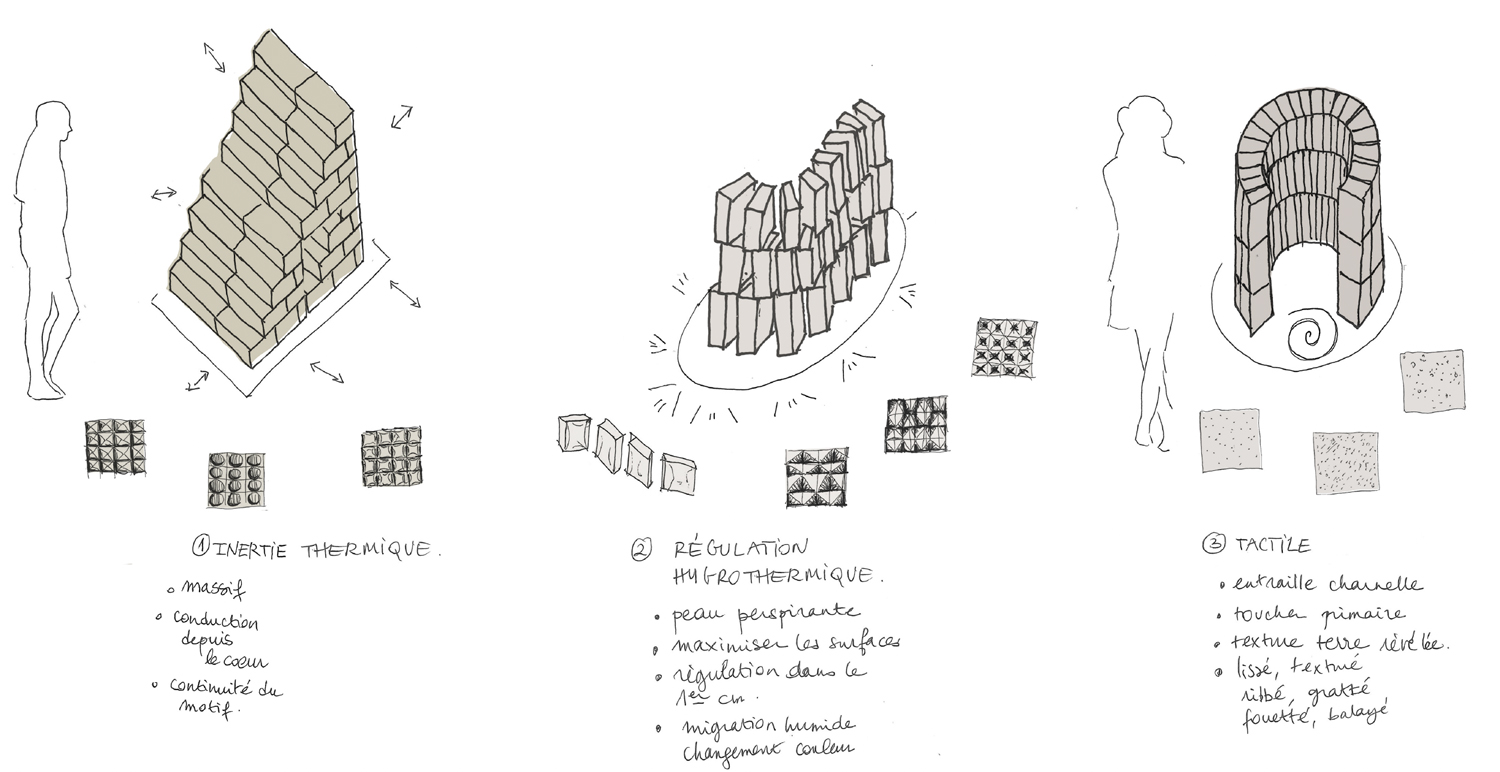 ① INERTIE THERMIQUE.
• massif
• conduction
depuis
le coeur
• continuité du
motif.
② RÉGULATION
HYGROTHERMIQUE.
• peau perspirante
• maximiser les surfaces
• régulation dans le
1er cm.
• migration humide
changement couleur
③ TACTILE
• entraille charnelle
• toucher primaire
• texture terre révélée.
• lissé, texturé
ribbé, gratté
fouetté, balayé